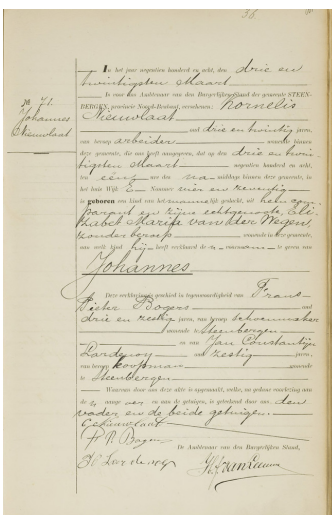 36.
In het jaar negentien honderd en acht, den drie en
twintigsten Maart
is voor ons Ambtenaar van den Burgerlijken Stand der gemeente STEEN-
BERGEN, provincie Noord-Brabant, verschenen: Kornelis
Nieuwlaat
oud drie en twintig jaren,
van beroep arbeider wonende binnen
deze gemeente, die ons heeft aangegeven, dat op den drie en twin
tigsten Maart negentien honderd en acht,
ten één ure des na middags binnen deze gemeente, in
het huis Wijk E Nummer vier en zeventig
is geboren een kind van het mannelijk geslacht, uit hem com
parant en zijne echtgenoote, Eli
zabet Maria van der Wegen
zonder beroep wonende in deze gemeente,
aan welk kind hij heeft verklaard de voornaam te geven van
Johannes
No. 71.
Johannes
Nieuwlaat
Deze verklaring is geschied in tegenwoordigheid van Frans
Pieter Bogers oud
drie en zestig jaren, van beroep schoenmaker
wonende te Steenbergen
en van Jan Constantijn
oud zestig jaren,
van beroep koopman wonende
te Steenbergen
Waarvan door ons deze akte is opgemaakt, welke, na gedane voorlezing aan
de aangever en aan de getuigen, is geteekend door ons, den
vader, en de beide getuigen.
Nieuwlaat
F. P. Bogers
De Ambtenaar van den Burgerlijken Stand,